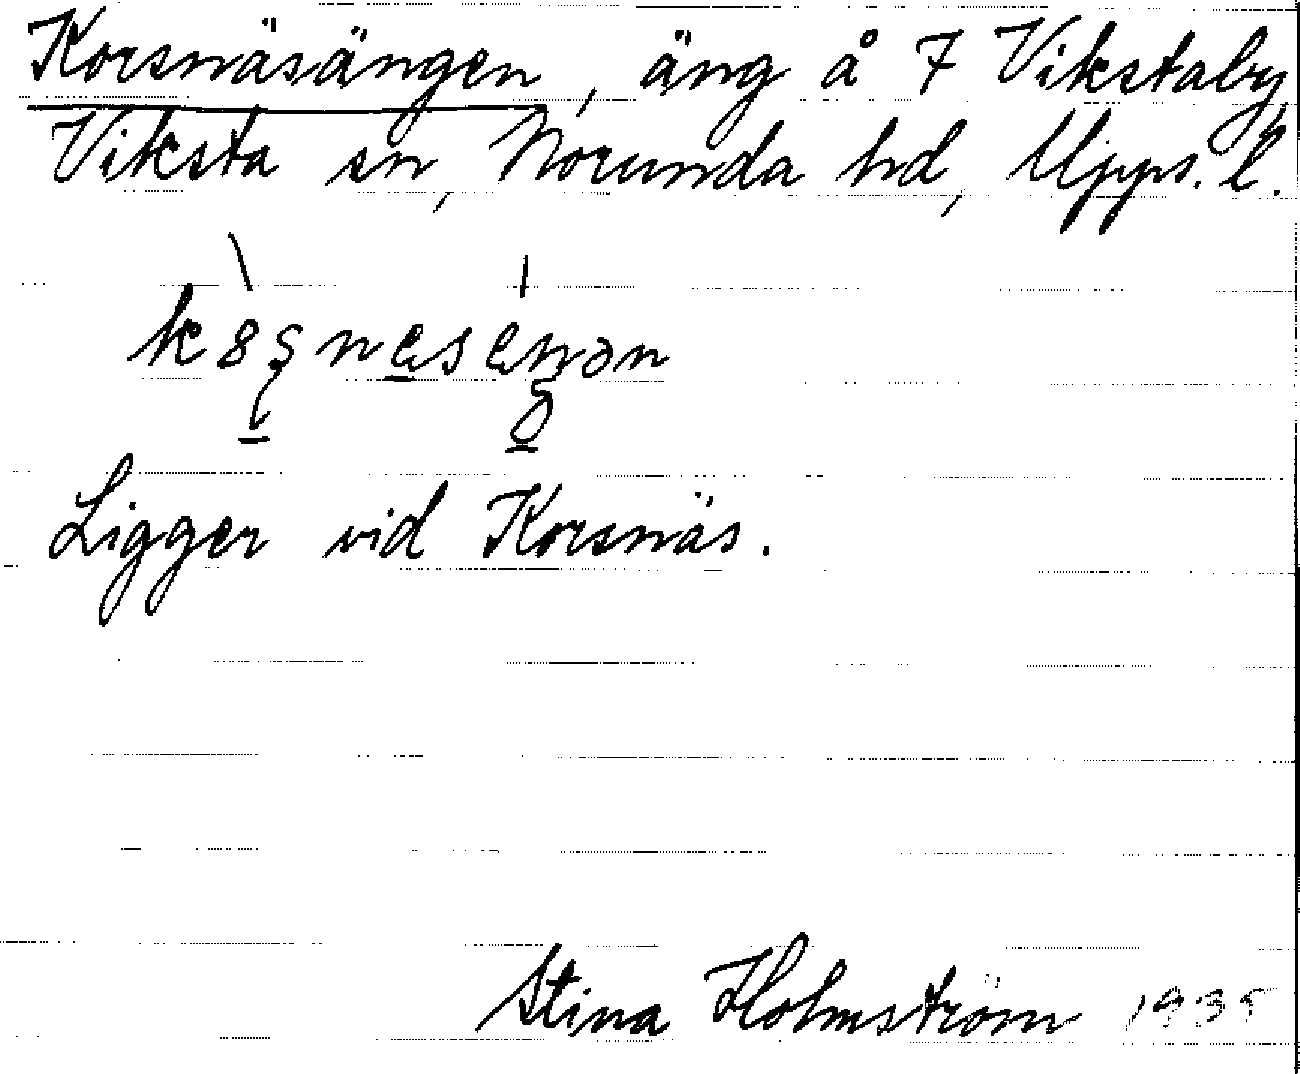 Korsnäsängen, äng å 7 Vikstaby,
Viksta sn, Norunda hd, Upps. l.
Ligger vid Korsnäs.
Stina Holmström 1935